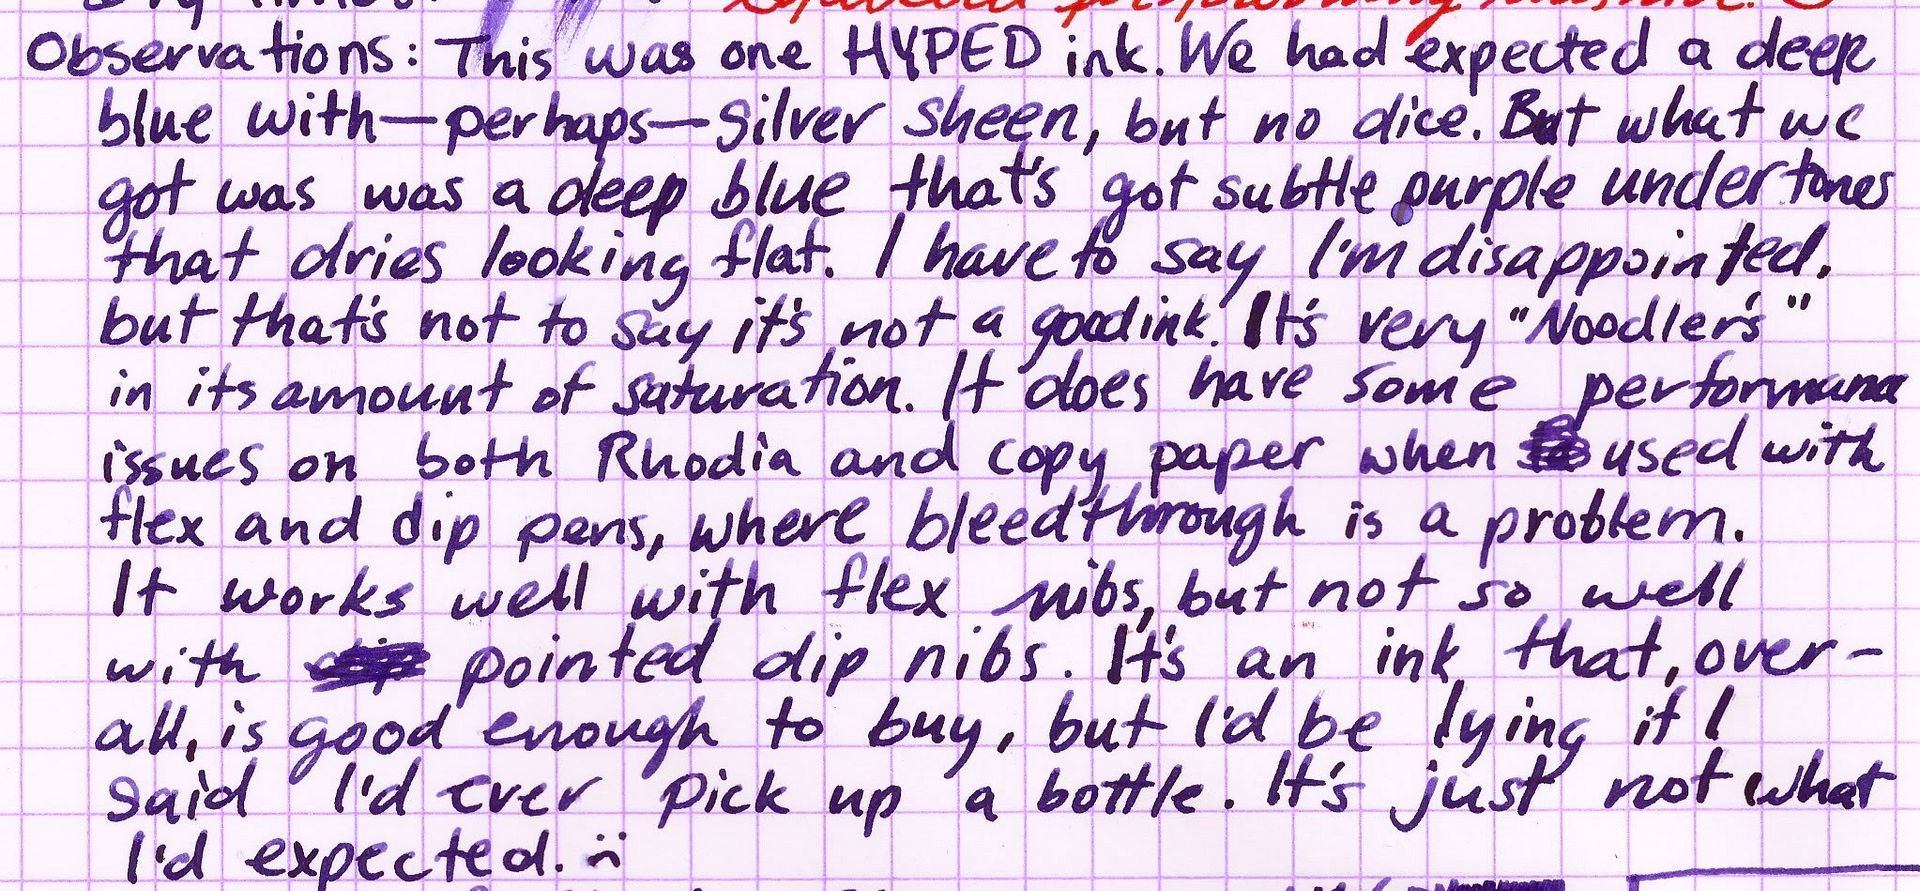 Observations: This was one HYPED ink. We had expected a deep
blue with—perhaps—silver sheen, but no dice. But what we
got was was a deep blue that's got subtle purple undertones
that dries looking flat. I have to say I'm disappointed,
but that's not to say it's not a good ink. It's very "Noodler's"
in its amount of saturation. It does have some performance
issues on both Rhodia and copy paper when used with
flex and dip pens, where bleedthrough is a problem.
It works well with flex nibs, but not so well
with pointed dip nibs. It's an ink that, over-
all, is good enough to buy, but I'd be lying if I
said I'd ever pick up a bottle. It's just not what
I'd expected. :(